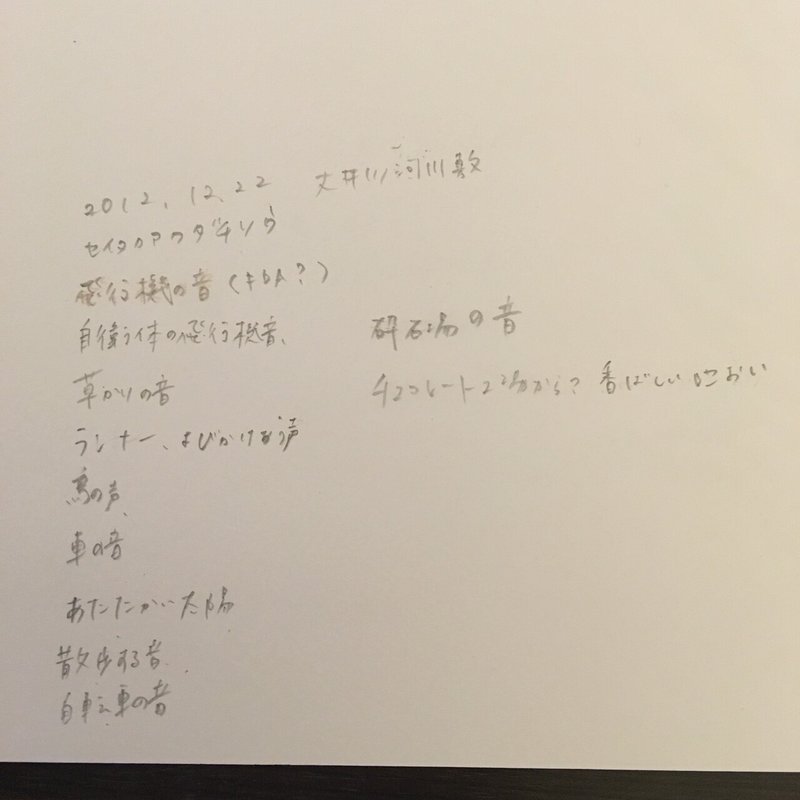 2012.12.22 大井川河川敷
セイタカアワダチソウ
飛行機の音(FDA?)
自衛う体の飛行機音、
草かりの音
ランナー、よびかけあう声
鳥の声、
車の音
あたたかい太陽
散歩する音
自転車の音
砕石場の音
チョコレート工場から?香ばしいにおい